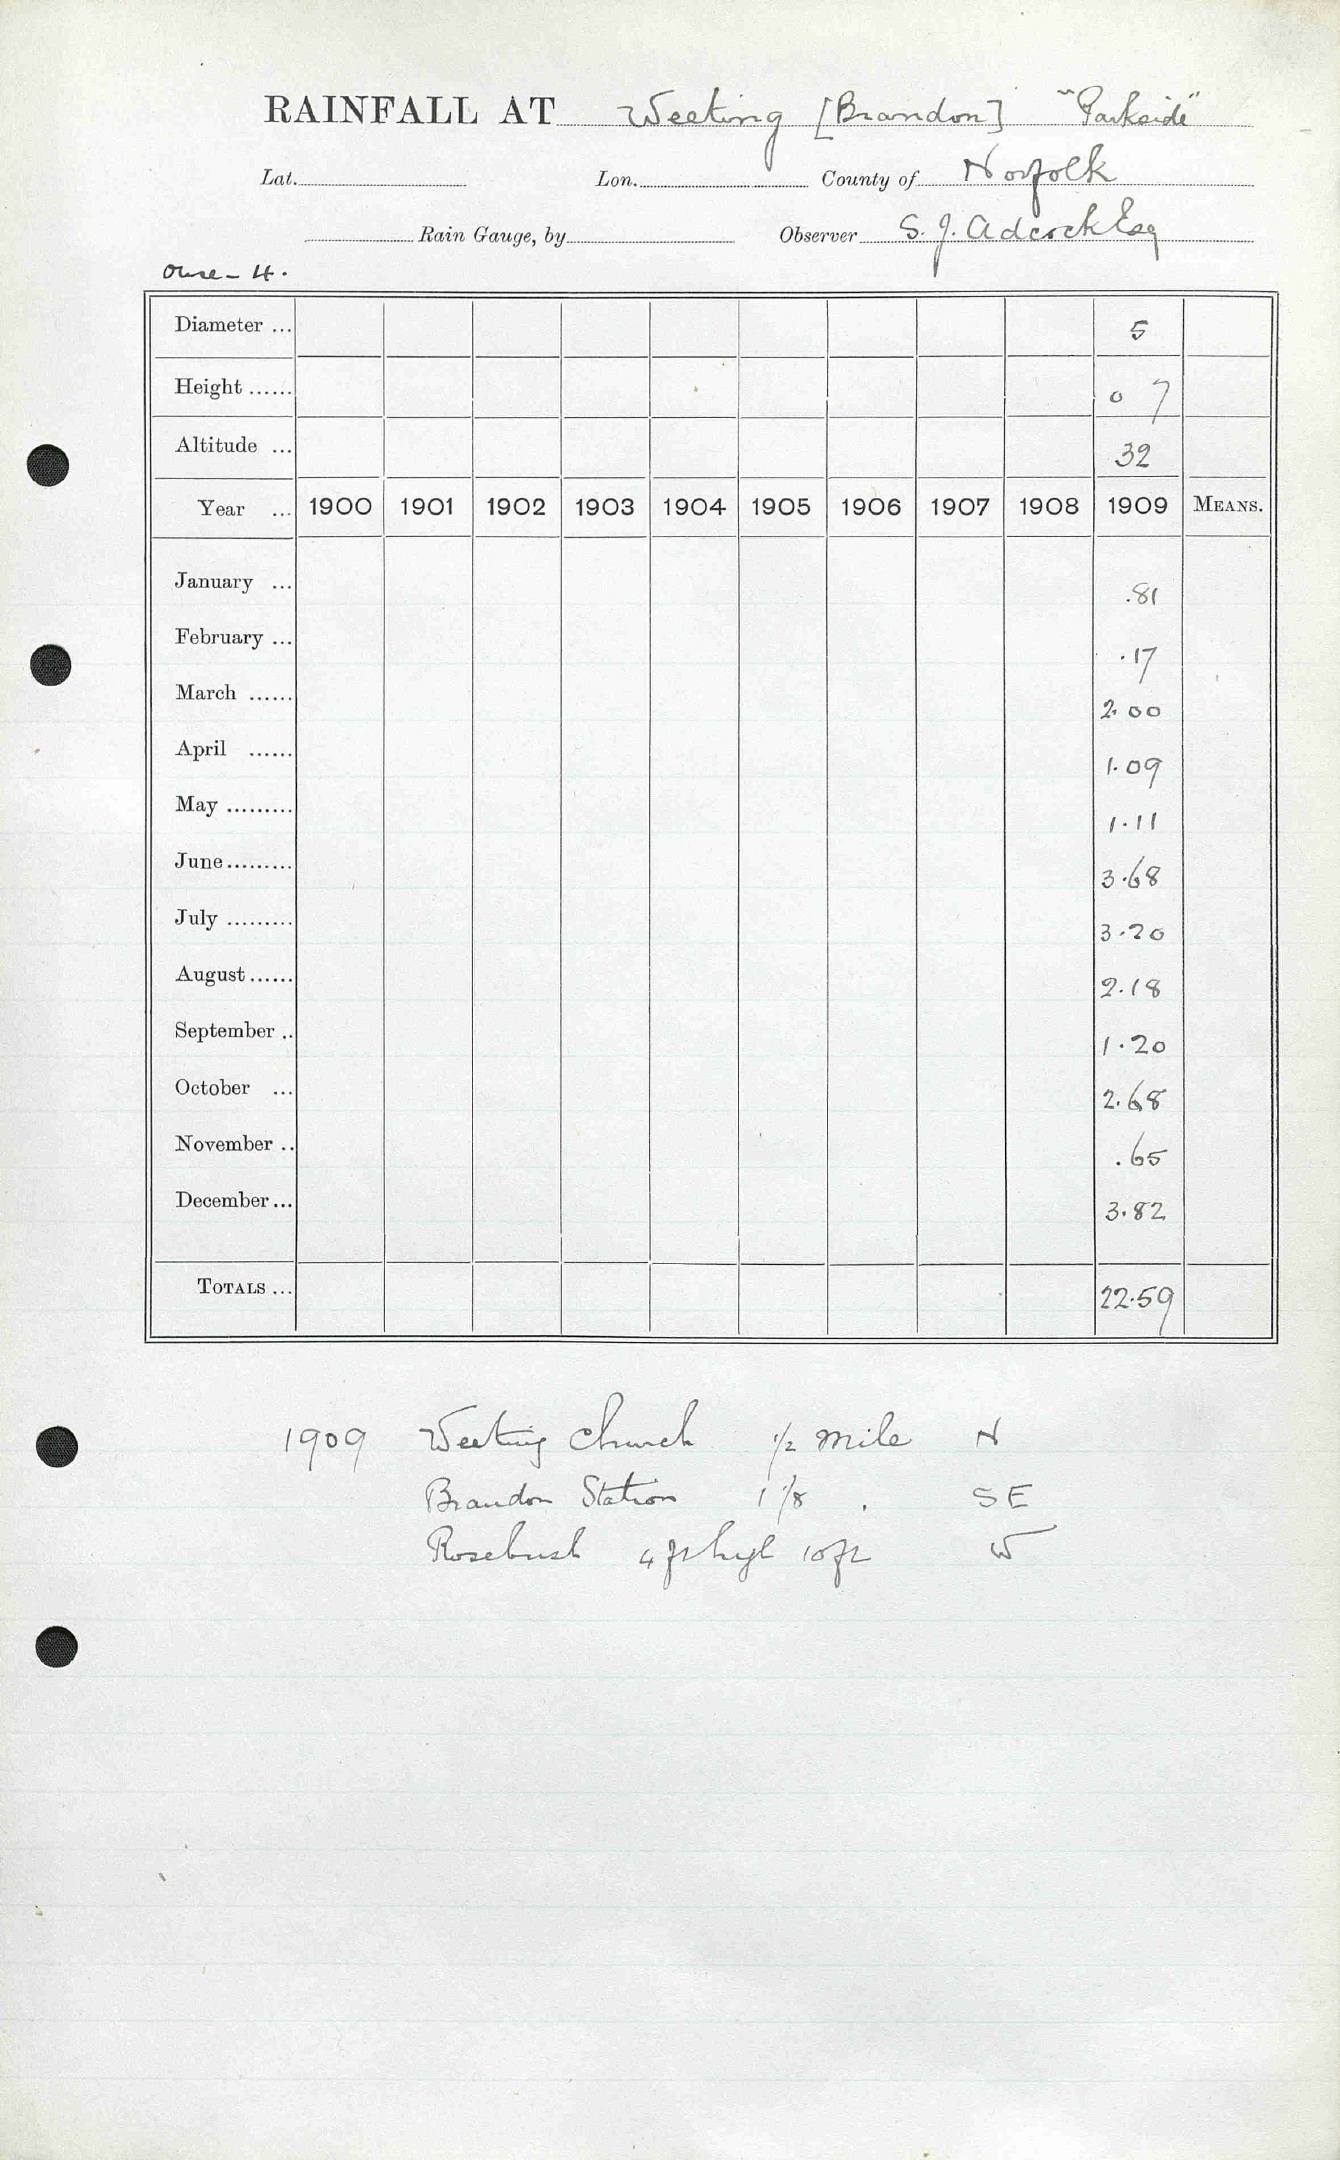 RAINFALL AT Weeting [Brandon] "Parkside"
Lat. Lon. County of Norfolk
Rain Gauge, by Observer S. J. Adcock Esq
Ouse - 4.
Diameter ... 5
Height ...... 0 7
Altitude ... 32
Year ... 1900 1901 1902 1903 1904 1905 1906 1907 1908 1909 MEANS.
January ... .81
February ... .17
March ...... 2.00
April ...... 1.09
May ......... 1.11
June ......... 3.68
July ......... 3.20
August ...... 2.18
September .. 1.20
October ... 2.68
November .. .65
December ... 3.82
TOTALS ... 22.59
1909 Weeting Church 1/2 mile N
Brandon Station 1 1/8 . SE
Rosebush 4 ft high 10 ft W